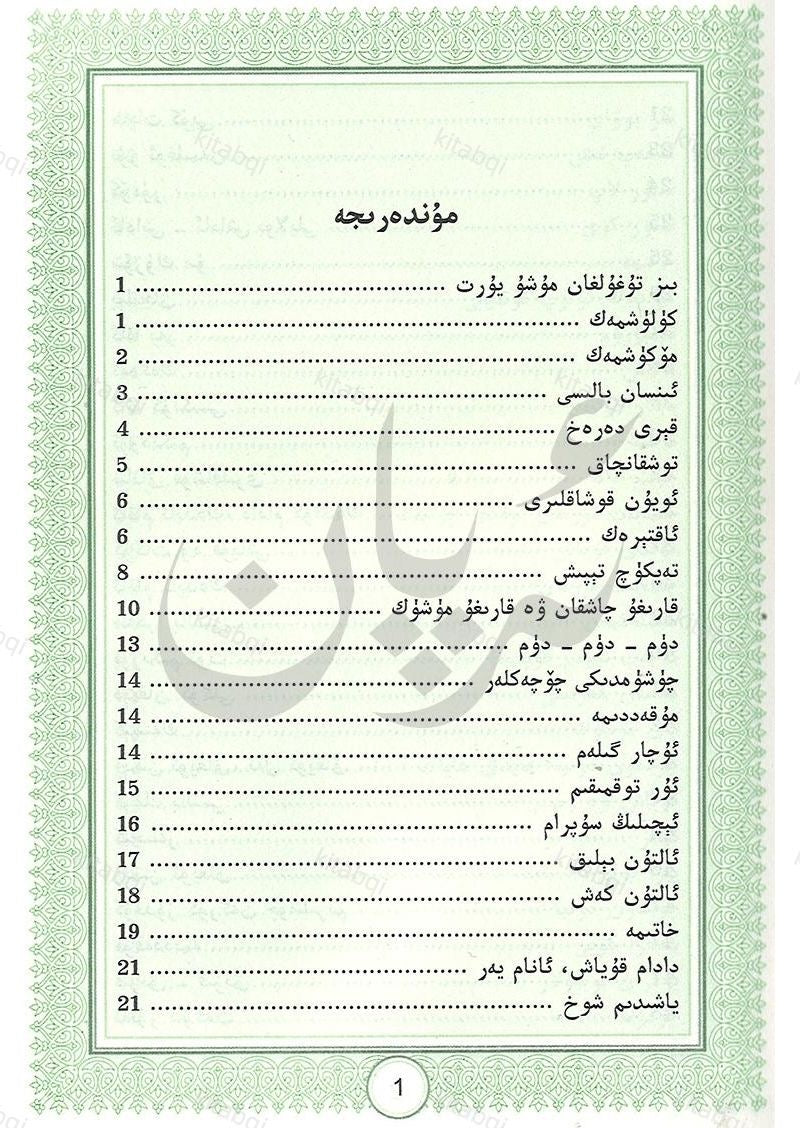 مۇندەرىجە
بىز تۇغۇلغان مۇشۇ يۇرت ............................................ 1
كۈلۈشمەك ............................................................... 1
ھۆكۈشمەك .............................................................. 2
ئىنسان بالىسى .......................................................... 3
قېرى دەرەخ ........................................................... 4
توشقانچاق .............................................................. 5
ئويۇن قوشاقلىرى ..................................................... 6
ئاقتېرەك ................................................................ 6
تەپكۈچ تېپىش ......................................................... 8
قارىغۇ چاشقان ۋە قارىغۇ مۈشۈك ................................. 10
دۈم - دۈم - دۈم ................................................... 13
چۈشۈمدىكى چۆچەكلەر .............................................. 14
مۇقەددىمە ............................................................. 14
ئۇچار گىلەم ........................................................... 14
ئۇر توقمىقىم .......................................................... 15
ئېچىلىڭ سۇپرام ...................................................... 16
ئالتۇن بېلىق .......................................................... 17
ئالتۇن كەش .......................................................... 18
خاتىمە .................................................................. 19
دادام قۇياش، ئانام يەر .............................................. 21
ياشىدىم شوخ ......................................................... 21
1